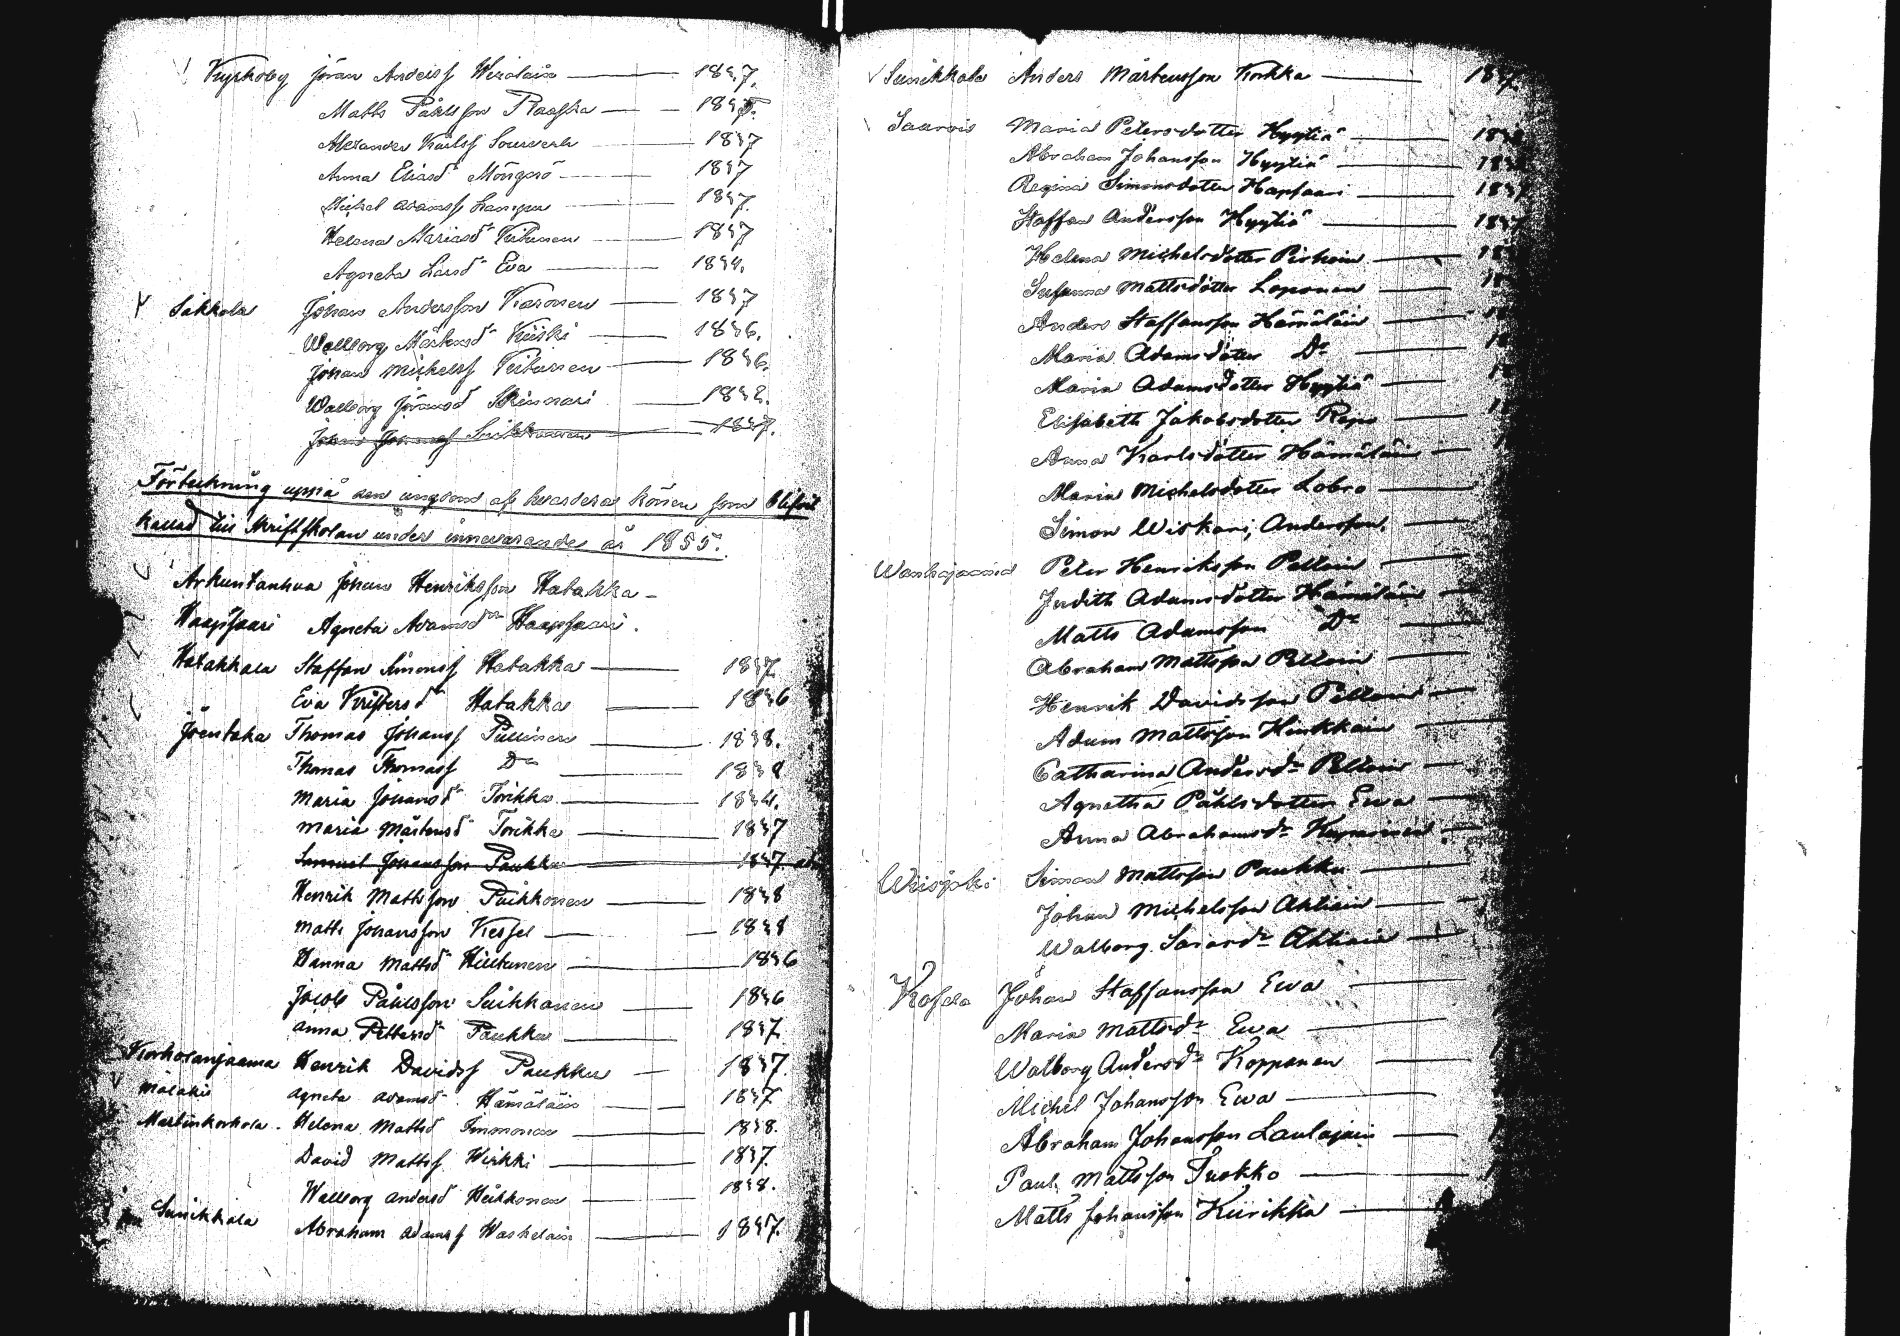 Kyrkoby Jöran Anderss Wirolain — 1837.
Matts Påhlsson Raaska — 1837.
Alexander Karlss Sourverk — 1837
Anna Eliasd Möngsö — 1837
Michel Adamss Lampu — 1837.
Helena Mariasd Tiitunen — 1837
Agneta Larsd Eva — 1834.
Sakkola Johan Andersson Karonen — 1837
Walborg Mårtensd Kiiski — 1836.
Johan Michelss Tiitunen — 1836.
Walborg Jöransd Skinnari — 1832.
Johan Johanss Suikkanen — 1837.
Förteckning uppå den ungdom af hvardera könen som blifvit
kallad till Skriftskolan under innevarande år 1855.
Arkuntanhua Johan Henriksson Hatakka —
Haapsaari Agneta Adamsdr Haapsaari.
Hatakkala Staffan Simonss Hatakka — 1837
Eva Kristersd Hatakka — 1836
Joentaka Thomas Johanss Pullinen — 1838.
Thomas Thomass Do — 1838
Maria Johansd Torikka — 1834.
Maria Mårtensd Torikka — 1837
Samuel Johansson Paukku — 1837.
Henrik Mattsson Puikkonen — 1838
Matts Johansson Kessel — 1838
Hanna Mattsd Hiitunen — 1836
Jacob Påhlsson Suikkanen — 1836
Anna Pettersd Paukku — 1837
Korholanjaama Henrik Davidss Paukku — 1837.
Mälakis Agneta Adamsd Hämäläin — 1837
Martinkorkola. Helena Mattsd Immonen — 1838.
David Mattss Wirkki — 1837.
Walborg Andersd Heikkonen — 1838.
Suirikkala Abraham Adamss Waskelain — 1837.
Suirikkala Anders Mårtensson Korkka — 1837.
Saarois Maria Petersdotter Hyytiä — 183
Abraham Johansson Hyytiä — 183
Regina Simonsdotter Hapsaari — 1837
Staffan Andersson Hyytiä — 1837
Helena Michelsdotter Pirhoin — 18
Susanna Mattsdotter Loponen —
Anders Staffansson Hämäläin —
Maria Adamsdotter Do —
Maria Adamsdotter Hyytiä —
Elisabeth Jakobsdotter Repo —
Anna Karlsdotter Hämäläin —
Maria Michelsdotter Lobro —
Simon Wiskari, Andersson. —
Wanhajaama Peter Henriksson Pelloin —
Judith Adamsdotter Hämäläin —
Matts Adamsson Do —
Abraham Mattsson Pelloin —
Henrik Davidsson Pellonen —
Adam Mattsson Hinkkain —
Catharina Andersdr Pelloin —
Agnetha Påhlsdotter Ewa —
Anna Abrahamsdr Kuparinen. —
Wiisjoki Simon Mattsson Paukku —
Johan Michelsson Ahtiain —
Walborg Isacsdr Ahtiain —
Kosela Johan Staffansson Ewa —
Maria Mattsdr Ewa —
Walborg Andersdr Kopponen —
Michel Johansson Ewa —
Abraham Johansson Laulajain —
Paul Mattsson Tuokko —
Matts Johansson Kiirikka —